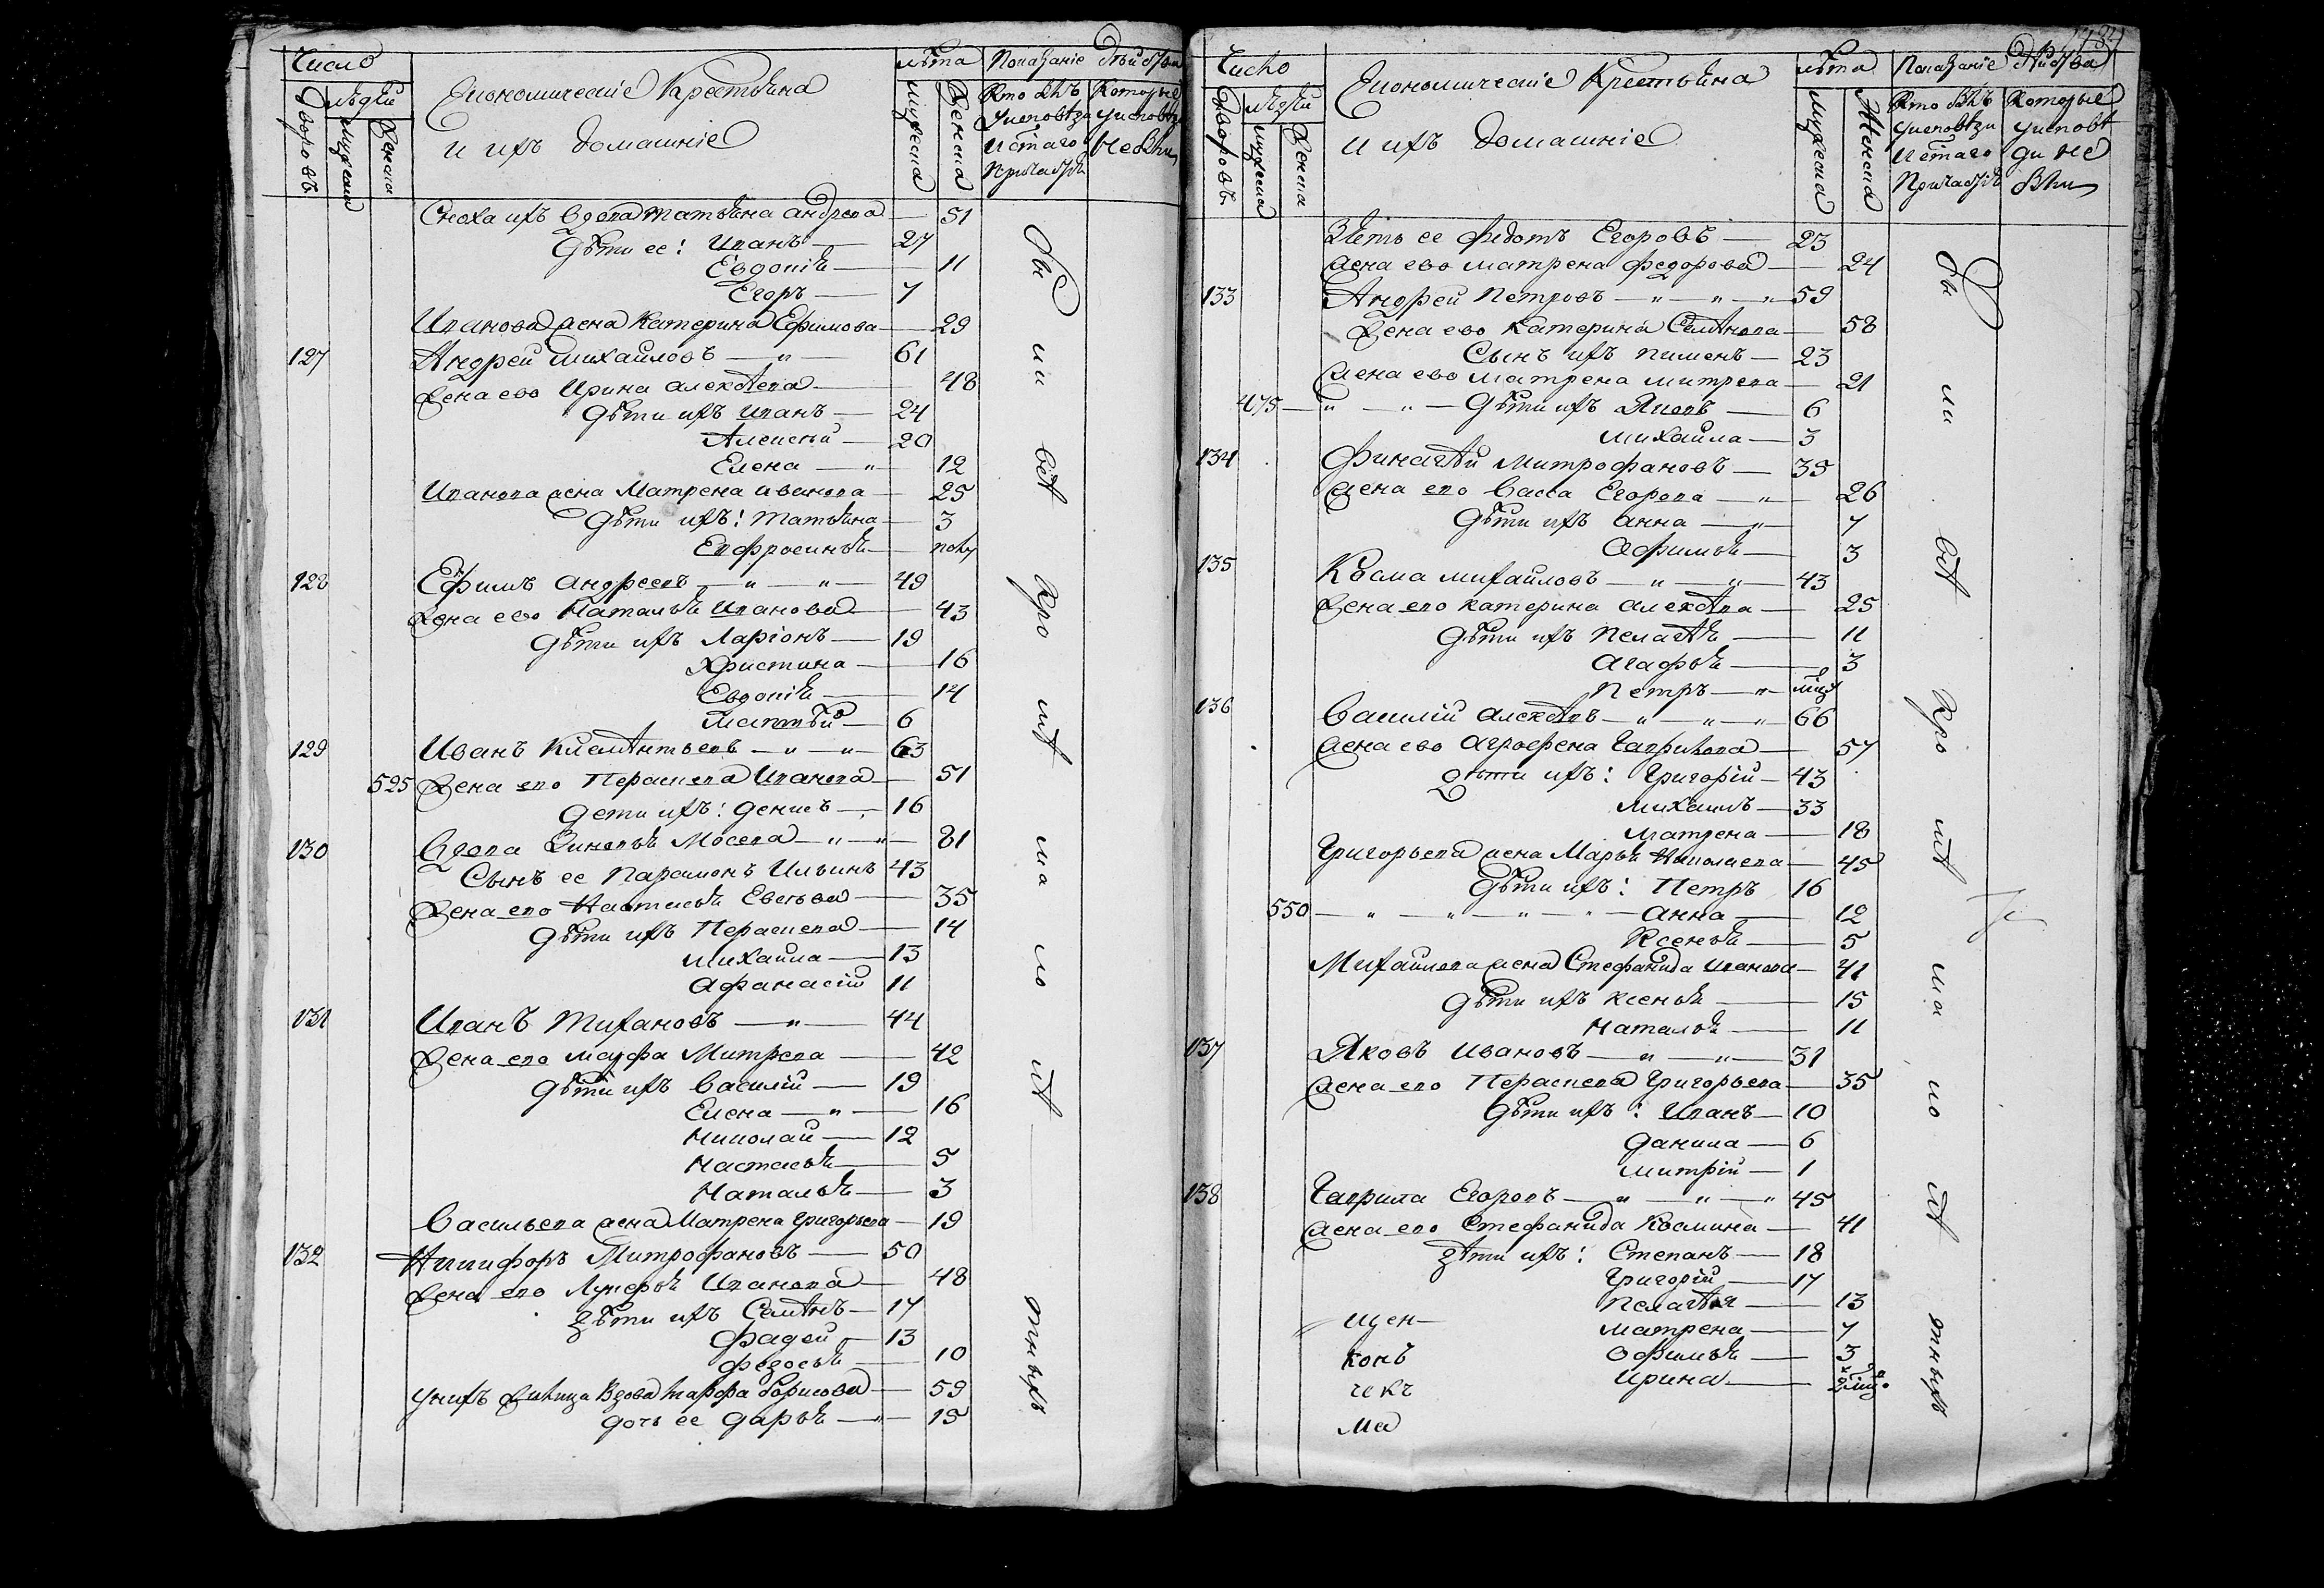 Число
людей
Дворовъ
Мужеска
Женска
Економическїе Крестьяна
и ихъ домашнїе
лѣта
Мужеска
Женска
Показанїе дѣйства
Кто былъ у исповѣди и с̃таго причастїя
Которые у исповѣди не были
Сноха ихъ вдова Татьяна Андрѣева — 51
Дѣти ее: Иванъ — 27
Евдокїя — 11
Егоръ — 7
Иванова жена Катерина Ефимова — 29
127 Андрей Михайловъ — " — 61
Жена ево Ирина Алексѣева — 48
Дѣти ихъ Иванъ — 24
Алексѣй — 20
Елена — " — 12
Иванова жена Матрена Иванова — 25
Дѣти ихъ: Татьяна — 3
Евфросинья — полу
128 Ефимъ Андреевъ — " — " — 49
Жена ево Наталья Иванова — 43
Дѣти ихъ Ларїонъ — 19
Христина — 16
Евдокїя — 14
Матвѣй — 6
129 Иванъ Клемѣнтьевъ — " — " — 63
525 Жена ево Пераскева Иванова — 51
Дети ихъ: Денисъ — 16
130 Вдова Зиновья Мосева — " — " — 81
Сынъ ее Парамонъ Ильинъ 43
Жена ево Настасья Евсѣева — 35
Дѣти ихъ Пераскева — 14
Михайла — 13
Афанасїй 11
131 Иванъ Тихановъ — " — 44
Жена ево Марфа Митрева — 42
Дѣти ихъ Василїй — 19
Елена — " — 16
Николай — 12
Настасья — 5
Наталья — 3
Васильева жена Матрена Григорьева — 19
132 Никифоръ Митрофановъ — 50
Жена ево Лукерья Иванова — 48
Дѣти ихъ Семѣнъ — 17
Фадей — 13
Федосья — 10
У нихъ жилица вдова Марфа Борисова — 59
Дочь ее Дарья — " — 15
Бы ли всѣ кро мѣ ма ло лѣ тныхъ
Число
людей
Дворовъ
Мужеска
Женска
Економическїе Крестьяна
и ихъ домашнїе
лѣта
Мужеска
Женска
Показанїе дѣйства
Кто былъ у исповѣди и с̃таго причастїя
Которые у исповѣди не были
Зять ее Федотъ Егоровъ — 23
Жена ево Матрена Федорова — 24
133 Андрей Петровъ — " — " — " 59
Жена ево Катерина Семѣнова — 58
Сынъ ихъ Пименъ — 23
Жена ево Матрена Митрева — 21
475 — " — " — Дѣти ихъ Яковъ — 6
Михайла — 3
134 Финагѣй Митрофановъ — 35
Жена ево Васса Егорева — " — 26
Дѣти ихъ Анна — " — 7
Офимья — 3
135 Козма Михайловъ — " — " — 43
Жена ево Катерина Алексѣва — 25
Дѣти ихъ Пелагѣя — 11
Агафья — 3
Петръ — " —
136 Василїй Алексѣвъ — " — " — " 66
Жена ево Агрофена Гаврилова — 57
Дѣти ихъ: Григорїй — 43
Михаилъ — 33
Матрена — 18
Григорьева жена Марья Николаева — 45
Дѣти ихъ: Петръ 16
550 — " — " — " — " — Анна — 12
Ксенья — 5
Михайлова жена Стефанида Иванова — 41
Дѣти ихъ Ксенья — 15
Наталья — 11
137 Яковъ Ивановъ — " — " — 31
Жена ево Пераскева Григорьева — 35
Дѣти ихъ: Иванъ — 10
Данила — 6
Митрїй — 1
138 Гаврила Егоровъ — " — " — " 45
Жена ево Стефанида Козмина — 41
Дѣти ихъ: Степанъ — 18
Григорїй — 17
Пелагѣя — 13
Матрена — 7
Офимья — 3
Ирина —
Бы ли всѣ кро мѣ ма ло лѣ тныхъ
щен—
конъ
Ма